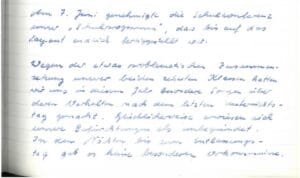 Am 7. Juni genehmigte die Schulkonferenz
unser "Schulprogramm", das bis auf das
Layout endlich fertiggestellt ist.
Wegen der etwas problematischen Zusammen-
setzung unserer beiden zehnten Klassen hatten
wir uns in diesem Jahr besondere Sorgen über
deren Verhalten nach dem letzten Unterrichts-
tag gemacht. Glücklicherweise erwiesen sich
unsere Befürchtungen als unbegründet.
In den Nächten bis zum Entlassungs-
tag gab es keine besonderen Vorkommnisse.